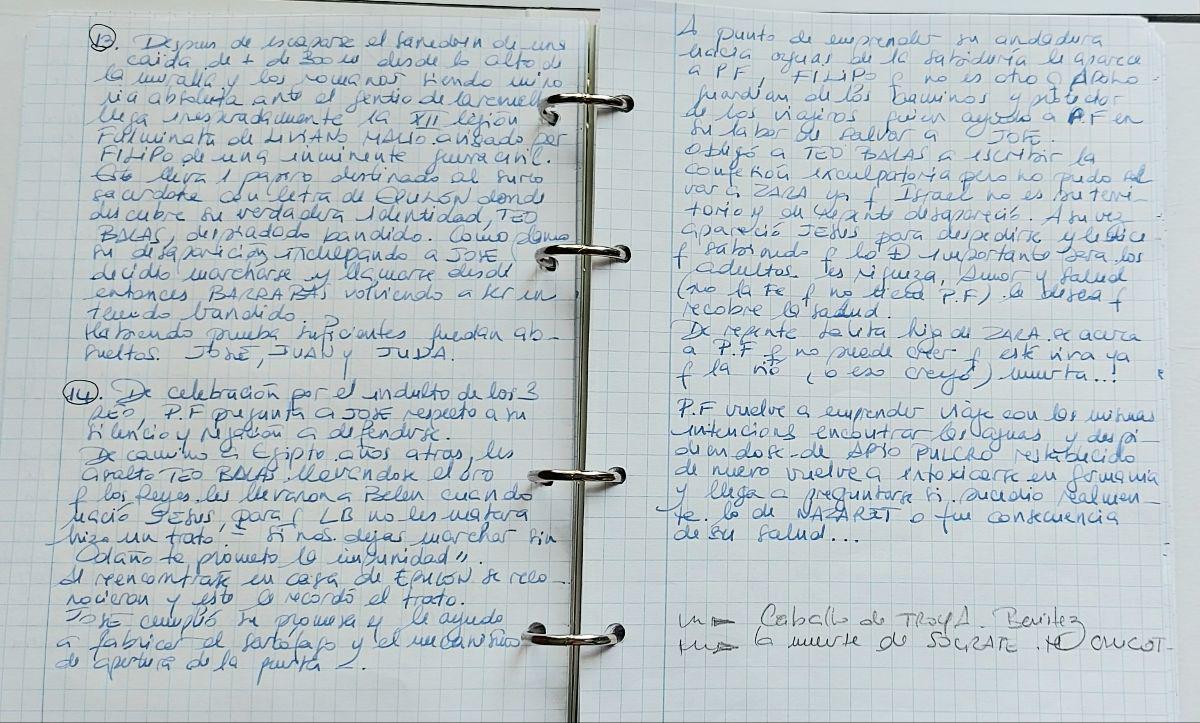 13. Despues de escaparse el sanedrin de una
caida de + de 300 m desde lo alto de
la muralla y los romanos siendo mino
ria absoluta ante el gentio de
llega inesperadamente la XII legion
Fulminata de LIVIANO MALIO avisado por
FILIPO de una inminente guerra civil.
Este lleva 1 papiro destinado al sumo
sacerdote con letra de EPULÓN donde
descubre su verdadera identidad, TEO
BALAS, despiadado bandido. Como
su desaparición inculpando a JOSE
decidio marcharse y llamarse desde
entonces BARRABAS volviendo a ser un
temido bandido.
Habiendo prueba suficientes quedan ab-
sueltos JOSE, JUAN y JUDA.
14. De celebración por el indulto de los 3
REO, P.F pregunta a JOSE respecto a su
silencio y negación a defenderse.
De camino a Egipto años atras, les
asalto TEO BALAS llevandose el oro
q los Reyes les llevaron a Belen cuando
nació JESUS, para q LB no les matara
hizo un trato. - Si nos dejas marchar sin
daño te prometo la impunidad".
Al reencontrarse en casa de EPULÓN se reco-
nocieron y este le recordó el trato.
JOSE cumplió su promesa y le ayudo
a fabricar el sarcofago y el mecanismo
de apertura de la puerta -.
A punto de emprender su andadura
hacia aguas de la sabiduria le aparece
a P.F, FILIPO q no es otro q APOLO
guardian de los caminos y protector
de los viajeros quien ayudo a P.F en
su labor de salvar a JOSE.
Obligó a TEO BALAS a escribir la
confesión exculpatoria pero no pudo sal
var a ZARA ya q Israel no es su terri-
torio y de repente desapareció. A su vez
apareció JESUS para despedirse y le dice
q sabiendo q lo + importante para los
adultos es riqueza, Amor y Salud
(no la Fe q no tiene P.F) le desea q
recobre la salud.
De repente Lalita hija de ZARA se acerca
a P.F q no puede creer q esté viva ya
q la vió (o eso creyó) muerta..!
P.F vuelve a emprender viaje con las mismas
intenciones encontrar las aguas y despi-
diendose de APIO PULCRO restablecido
de nuevo vuelve a intoxicarse en germania
y llega a preguntarse si sucedio realmen-
te lo de NAZARET o fue consecuencia
de su salud...
Caballo de TROYA. Benitez
la muerte de SOCRATE.